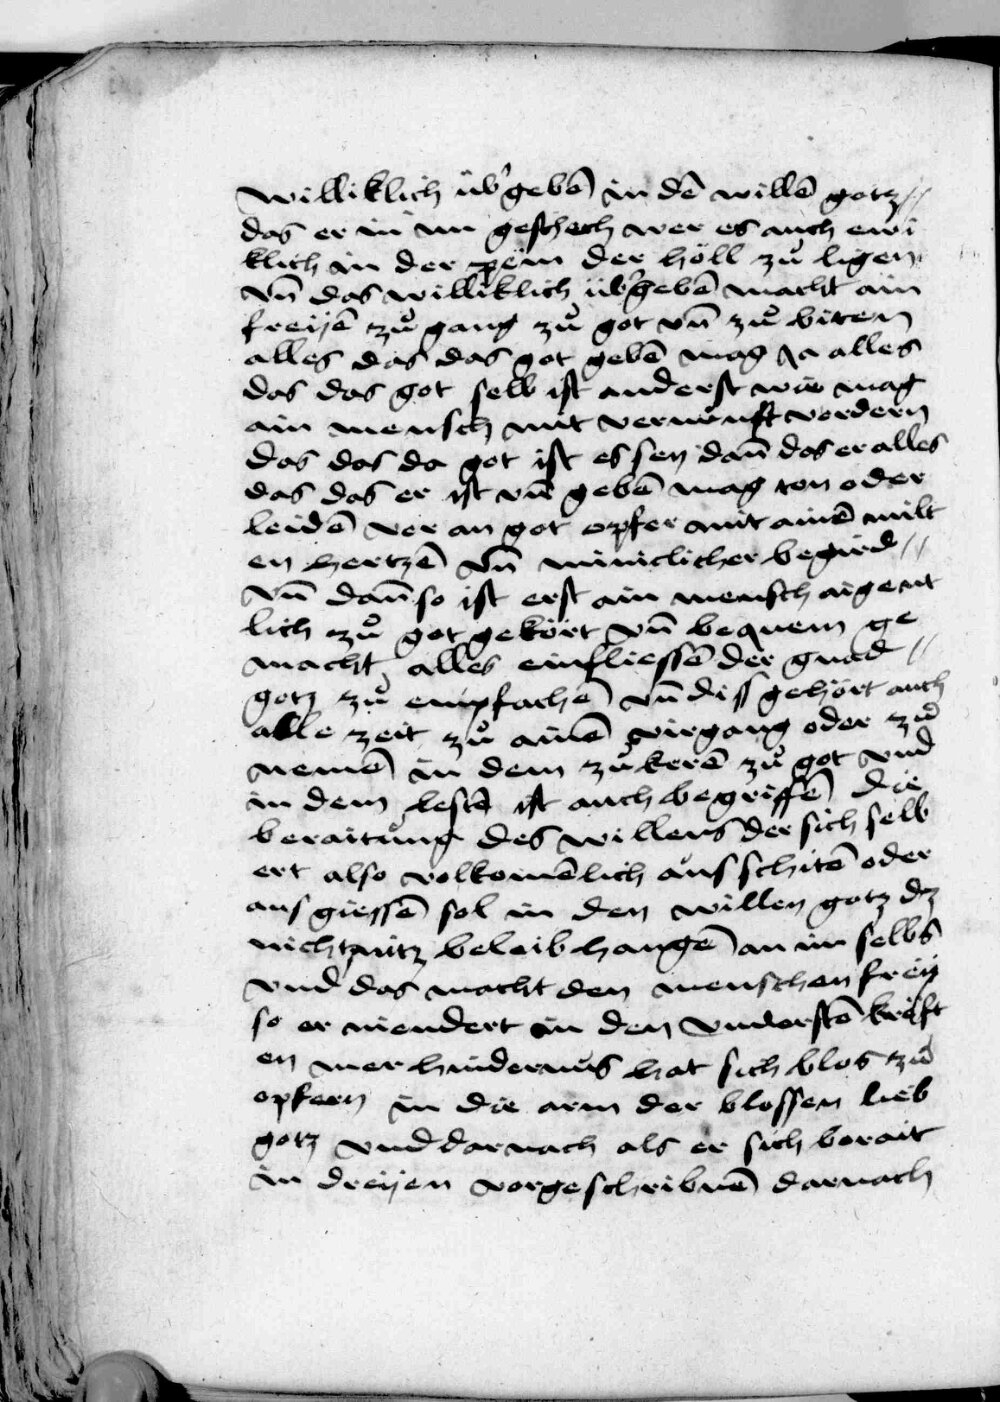 williklich übʼgebē in dē willē gotz //
das er in im geschech wer es auch ewi
klich in der pein der höll zů ligen
vn̄ das williklich übʼgebē macht ain
freijē zů gang zů got vn̄ zů biten
alles das das got gebē mag Ja alles
das das got selb ist anderst wie mag
ain mensch mit vernunft vordern
das das da got ist es seÿ dan̄ das er alles
das das er ist vn̄ gebē mag ton oder
leidē vor an got opfer mit ainē milt
en hertzē vn̄ miniclicher begird //
vn̄ dan̄ so ist erst ain mensch aigent
lich zů got gekört vn̄ bequem ge
macht alles einfliessē der gnad //
gotz zů empfachē vn̄ diss gehört auch
alle zeit zů ainē virgang oder zů
nemē in dem zůkerē zů got vnd
in dem lestē ist auch begriffē die
beraitung des willens der sich selb
ert also volkomēlich aus schitē oder
aus giessē sol in den willen gotz dz
nichtznitz beleib hangē an im selbs
vnd das macht den menschen freÿ
so er niendert in den vnderstē kreft
en mer hindernus hat sich blos zů
opfern in die arm der blossen lieb
gotz vnd darnach als er sich berait
in dreijen vorgeschribnē darnach